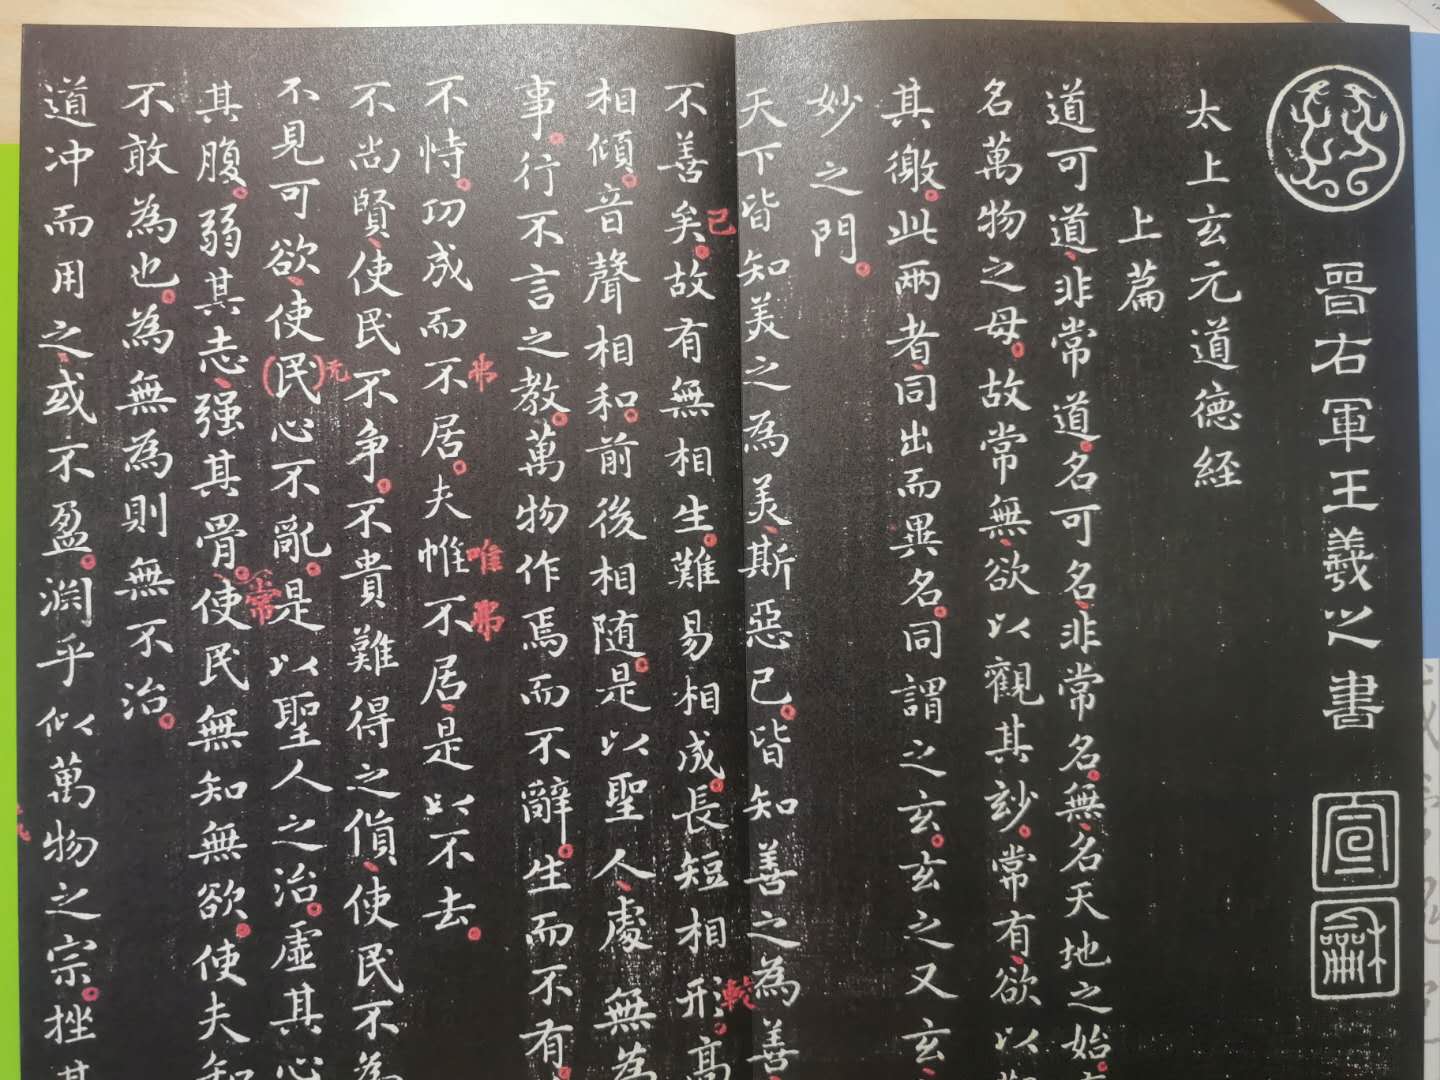 晉右軍王羲之書
宣
龢
太上玄元道德經
上篇
道可道非常道名可名非常名無名天地之始有
名萬物之母故常無欲以觀其玅常有欲以觀
其徼此兩者同出而異名同謂之玄玄之又玄
妙之門
天下皆知美之為美斯惡已皆知善之為善
不善矣故有無相生難易相成長短相形高
已
較
相傾音聲相和前後相随是以聖人處無為
事行不言之教萬物作焉而不辭生而不有
不恃功成而不居夫惟不居是以不去
弗
唯
弗
不尚賢使民不争不貴難得之貨使民不為
不見可欲使民心不亂是以聖人之治虛其心
无
其腹弱其志强其骨使民無知無欲使夫知
常
不敢為也為無為則無不治
道冲而用之或不盈淵乎似萬物之宗挫其